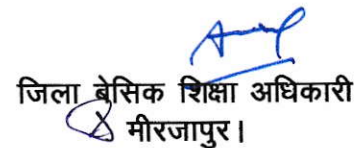 जिला बेसिक शिक्षा अधिकारी
मीरजापुर।